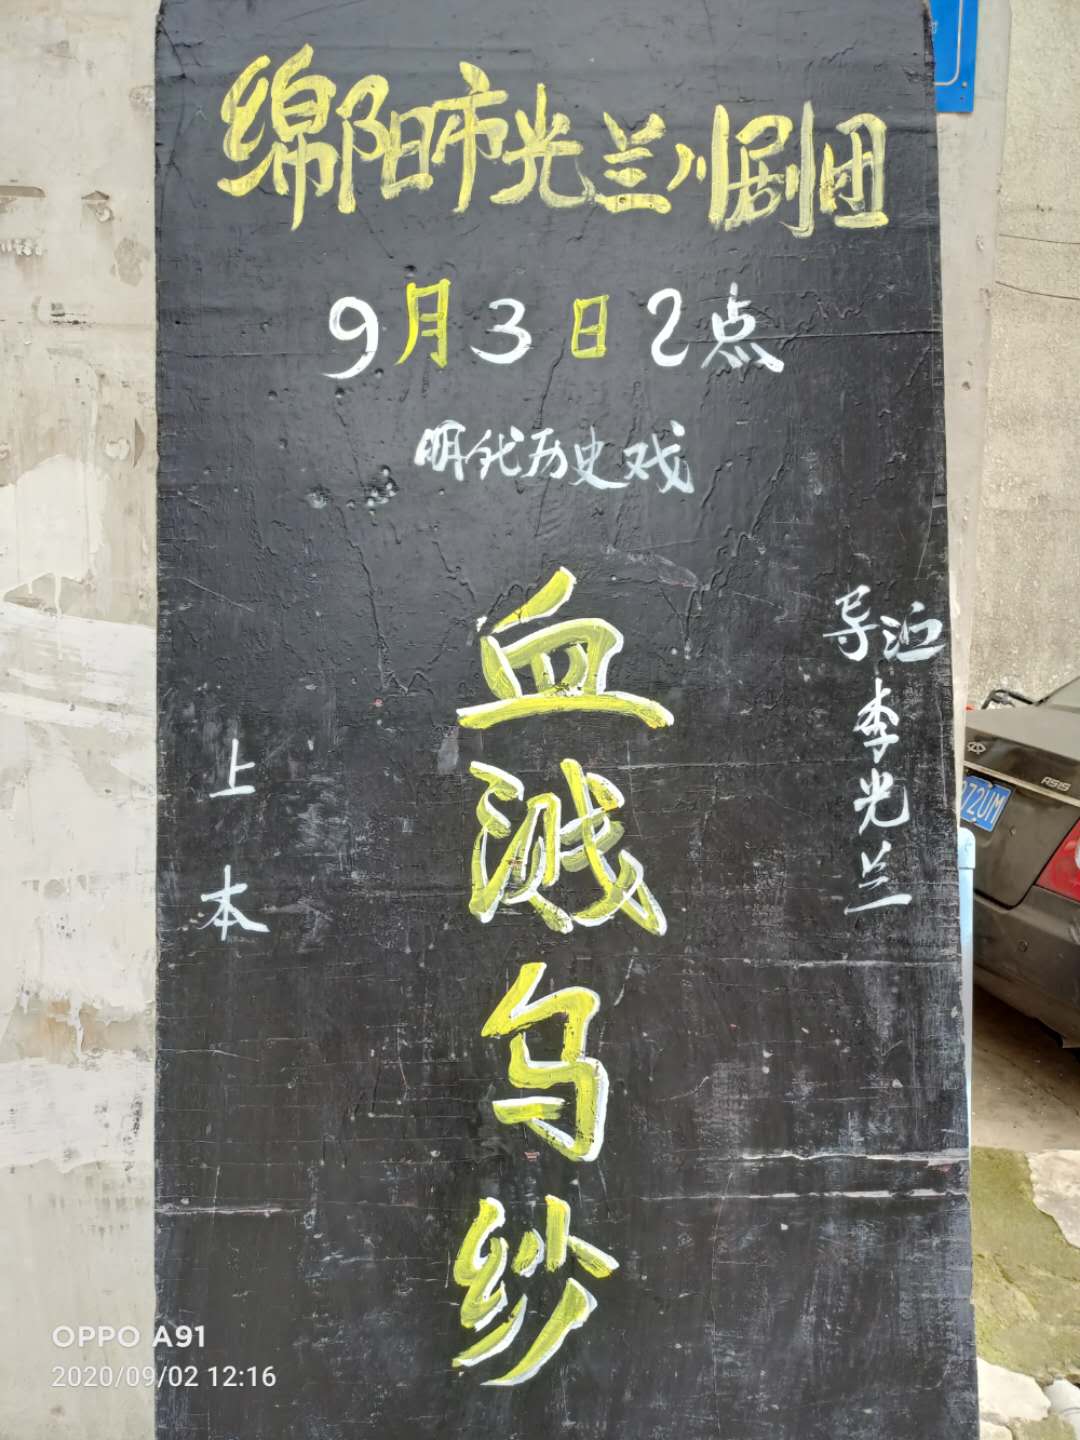 绵阳市光兰川剧团
9月3日2点
明代历史戏
导演李光兰
血溅乌纱
上本
ASIS
72UM
OPPO A91
2020/09/02 12:16